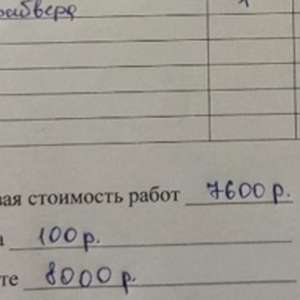 райвера
вая стоимость работ 7600 р.
а 100 р.
те 8000 р.